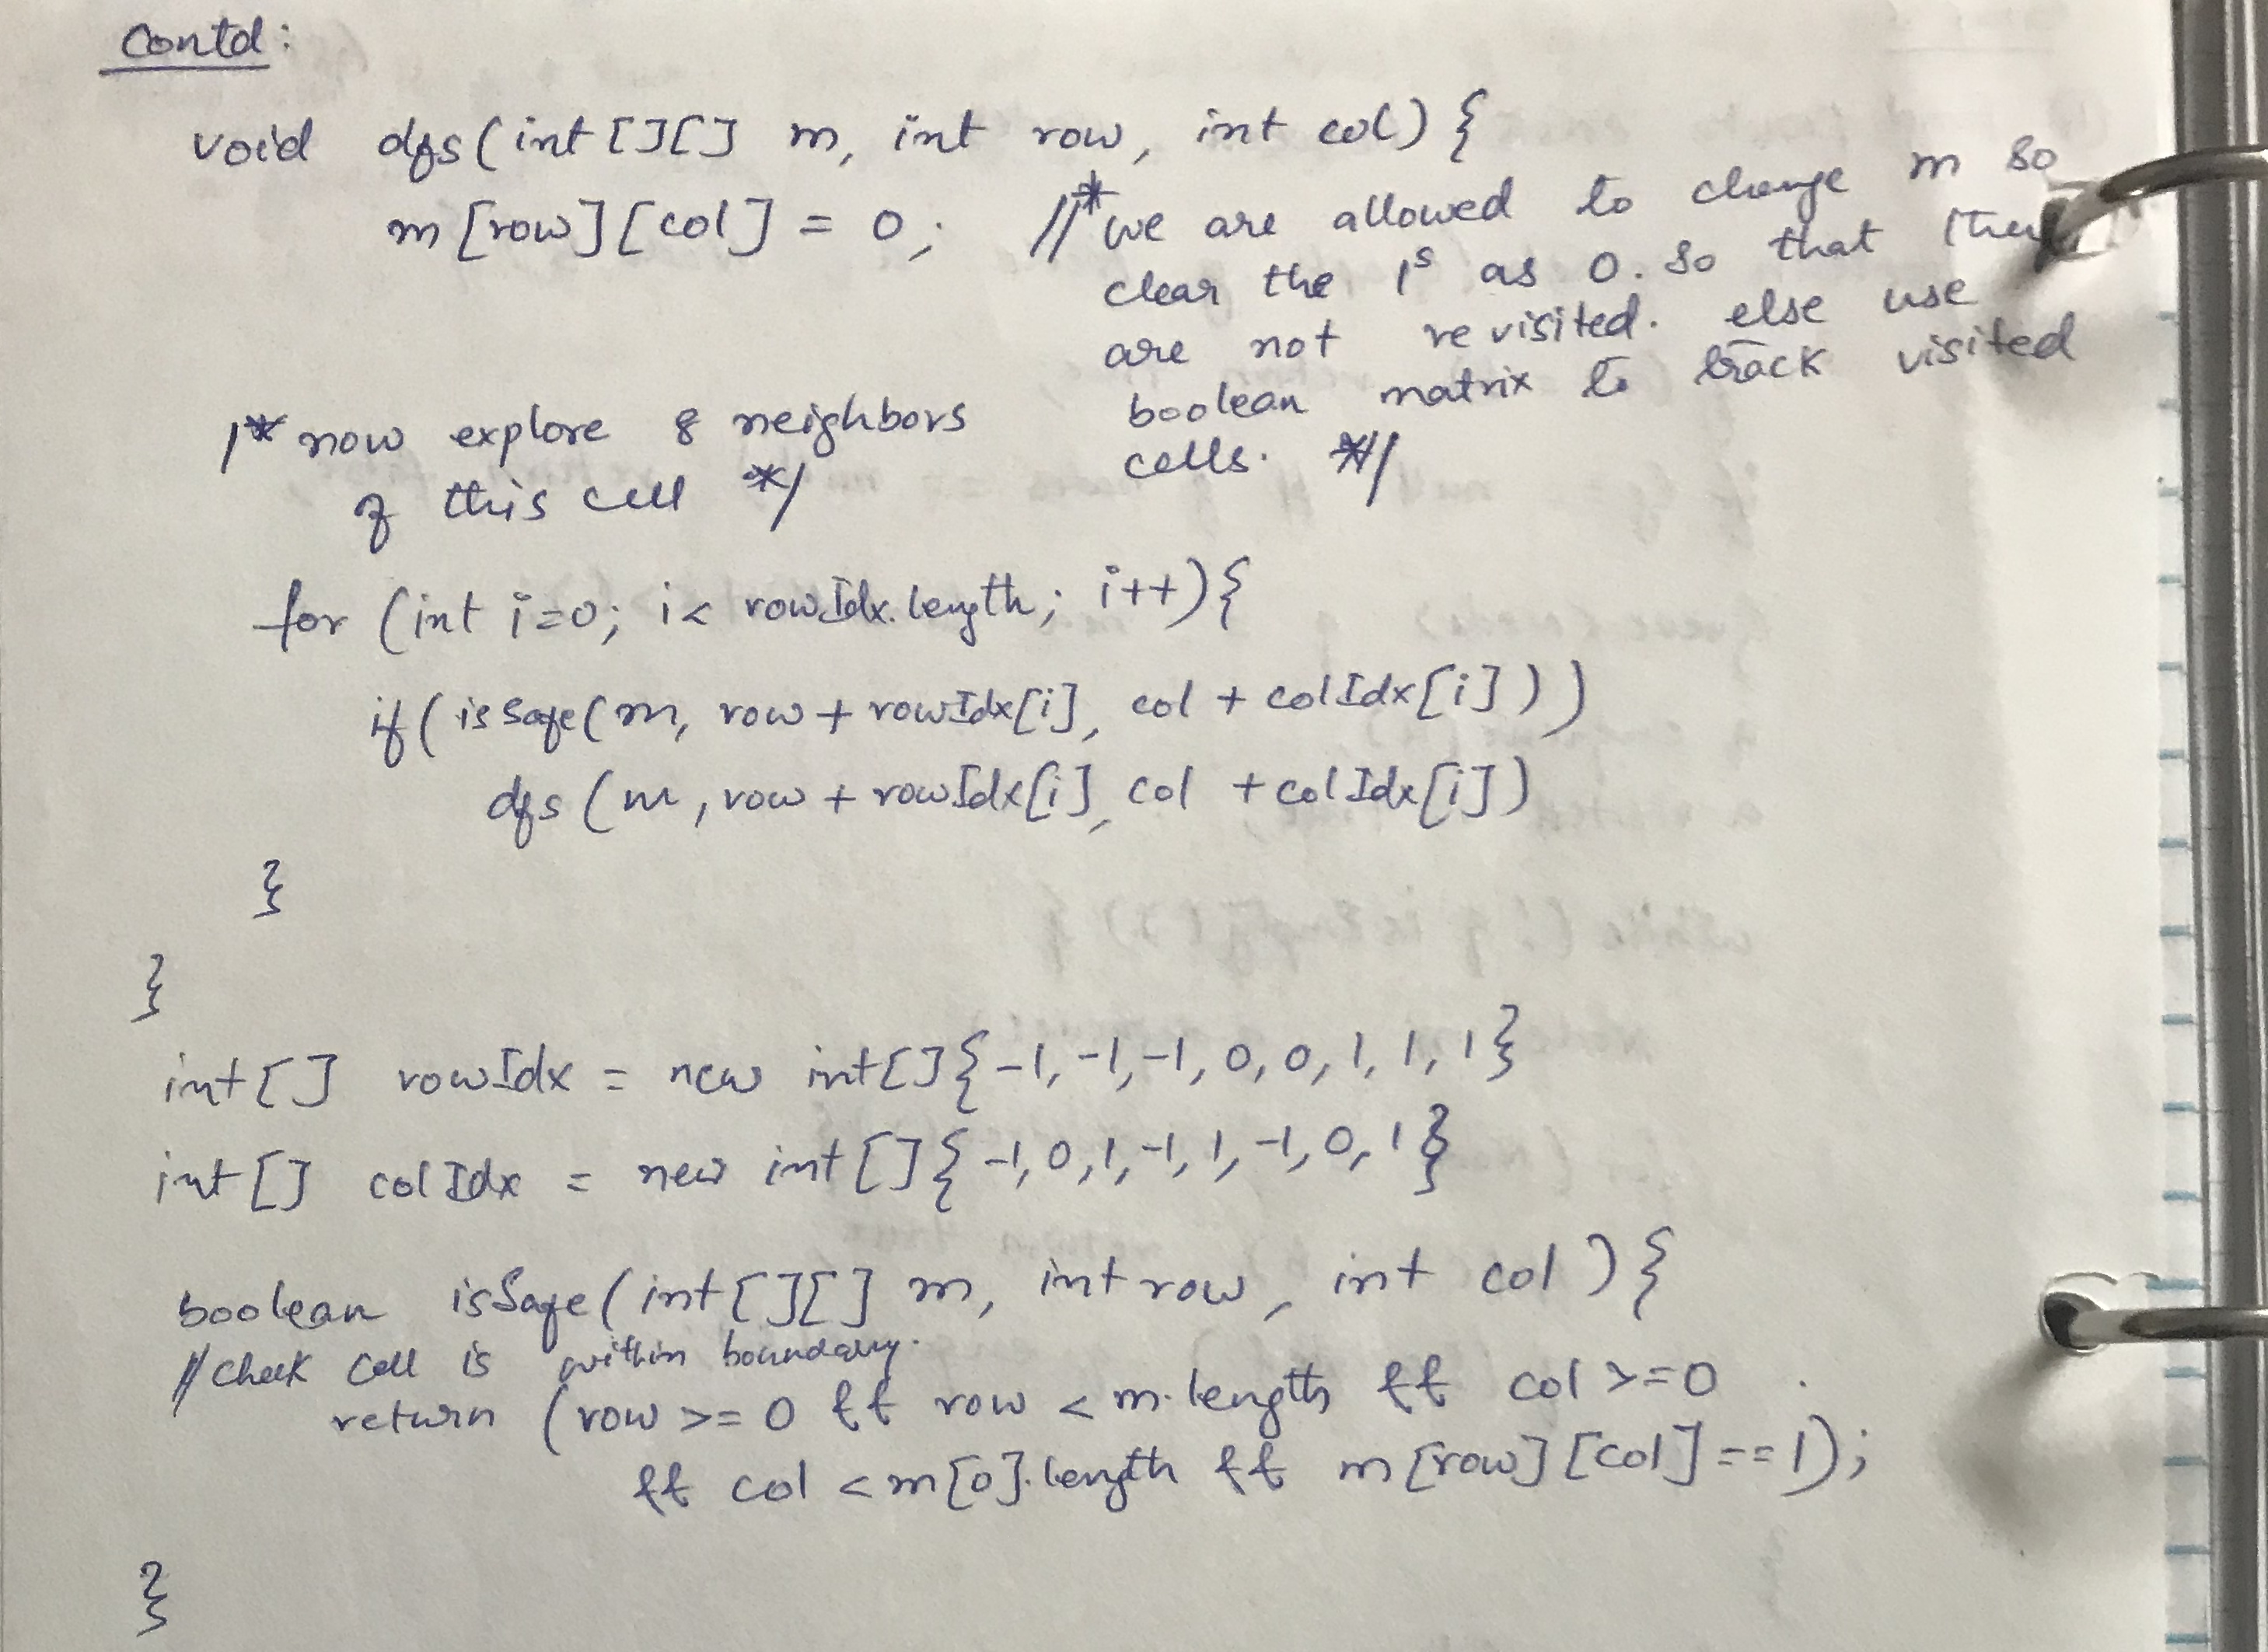 Contd:
void dfs(int[][] m, int row, int col) {
m[row][col] = 0; //* we are allowed to change m so
clear the 1s as 0. So that they
are not revisited. else use
boolean matrix to track visited
cells. *//
/* now explore 8 neighbors
of this cell */
for (int i=0; i< rowIdx.length; i++){
if(isSafe(m, row + rowIdx[i], col + colIdx[i]))
dfs (m, row + rowIdx[i], col + colIdx[i])
}
}
int[] rowIdx = new int[]{-1,-1,-1,0,0,1,1,1}
int[] colIdx = new int[]{-1,0,1,-1,1,-1,0,1}
boolean isSafe(int[][] m, int row, int col){
// check cell is within boundary.
return (row >= 0 && row < m.length && col >=0
&& col < m[0].length && m[row][col]==1);
}